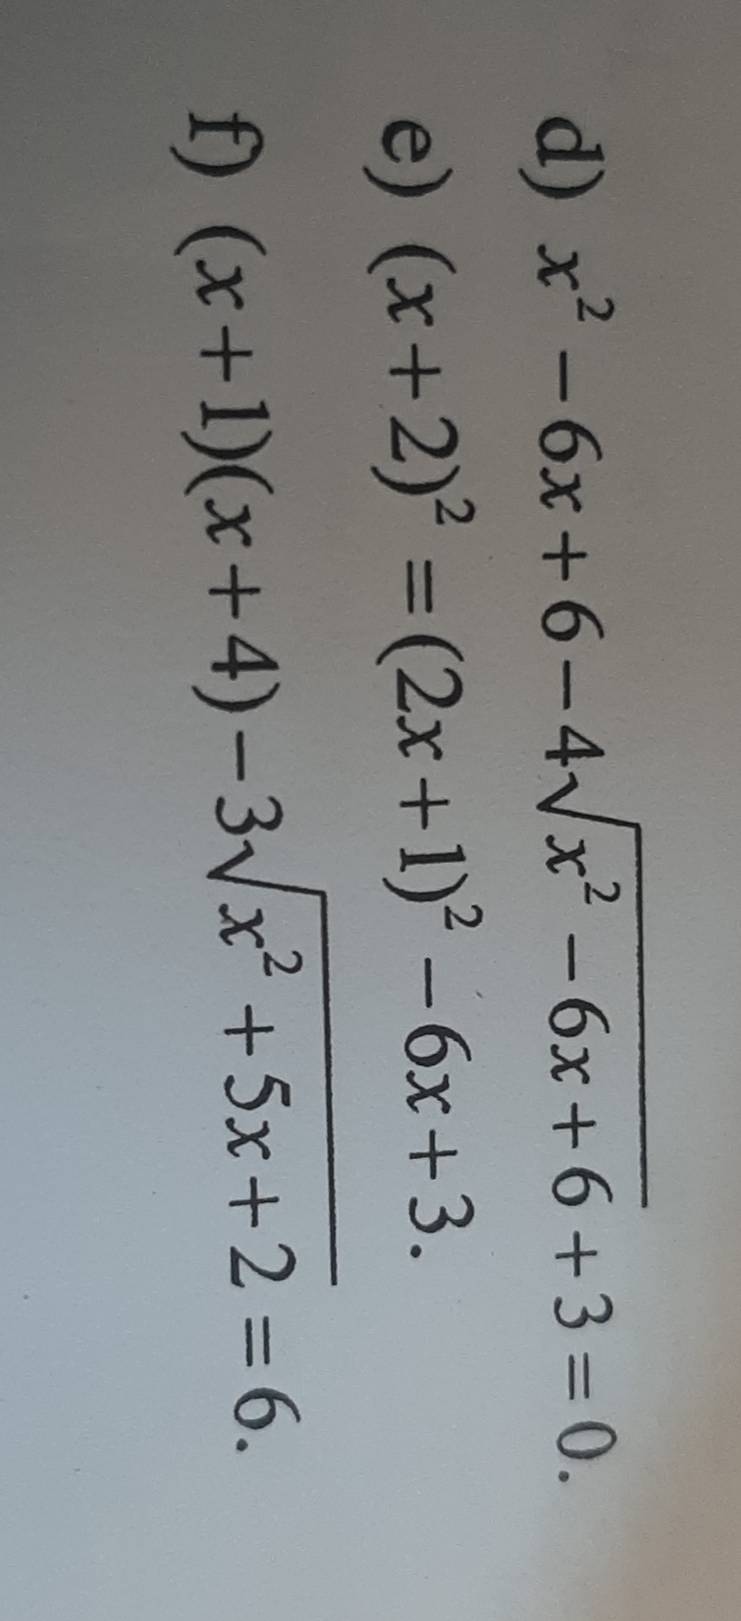 d) x² − 6x + 6 − 4√(x² − 6x + 6) + 3 = 0.
e) (x + 2)² = (2x + 1)² − 6x + 3.
f) (x + 1)(x + 4) − 3√(x² + 5x + 2) = 6.